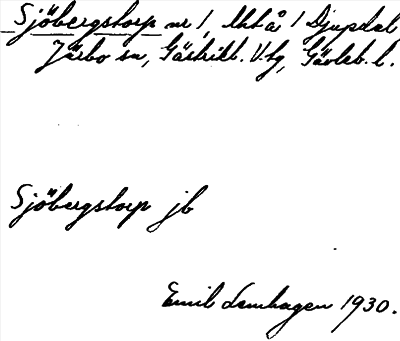 Sjöbergstorp nr 1, lht å 1 Djupdal
Järbo sn, Gästrikl. V. tg, Gävleb. l.
Sjöbergstorp jb
Emil Lemhagen 1930.